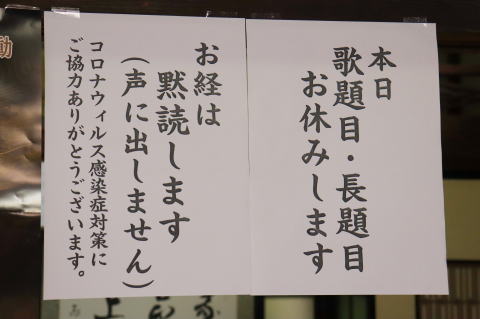 本日
歌題目・長題目
お休みします
お経は
黙読します
(声に出しません)
コロナウィルス感染症対策に
ご協力ありがとうございます。
動